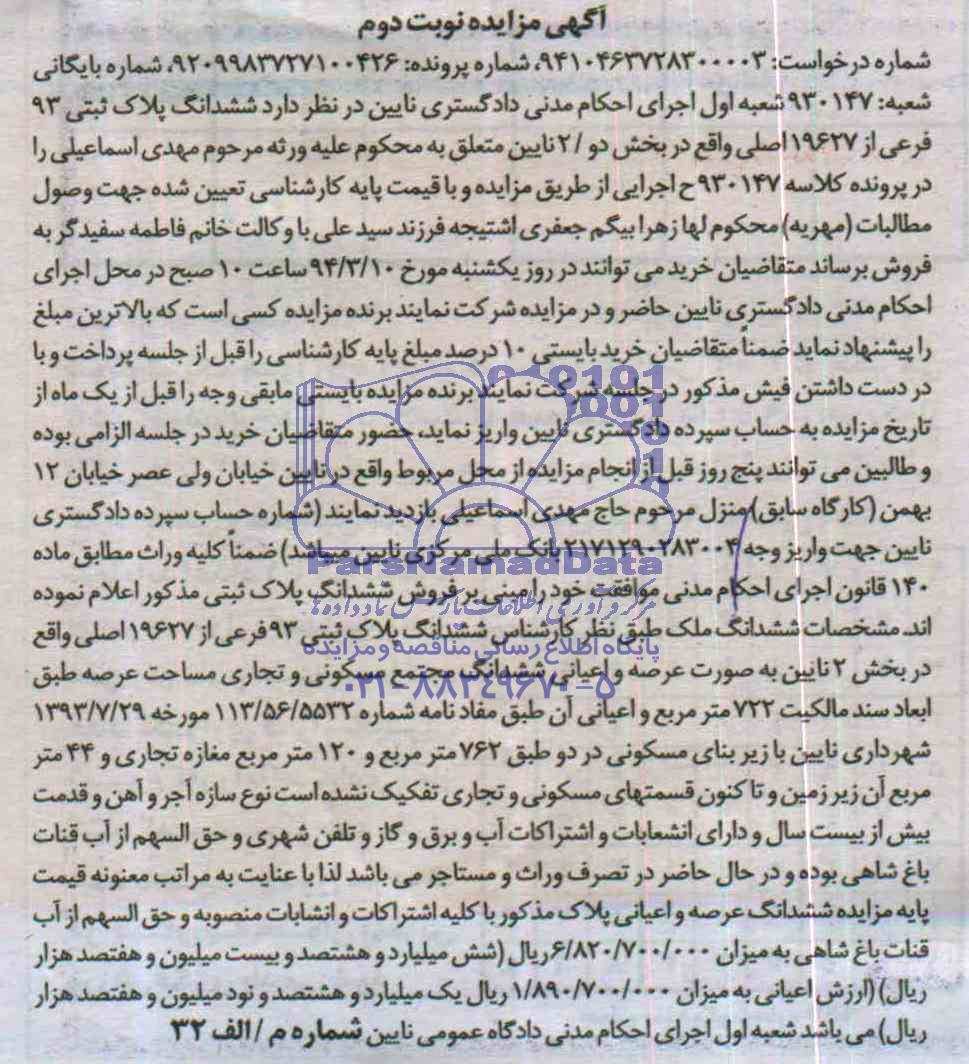 آگهی مزایده نوبت دوم
شماره درخواست: ۹۴۱۰۴۶۳۷۲۸۳۰۰۰۰۳، شماره پرونده: ۹۲۰۹۹۸۳۷۲۷۱۰۰۴۲۶، شماره بایگانی
شعبه: ۹۳۰۱۴۷ شعبه اول اجرای احکام مدنی دادگستری نایین در نظر دارد ششدانگ پلاک ثبتی ۹۳
فرعی از ۱۹۶۲۷ اصلی واقع در بخش دو /۲ نایین متعلق به محکوم علیه ورثه مرحوم مهدی اسماعیلی را
در پرونده کلاسه ۹۳۰۱۴۷ ح اجرایی از طریق مزایده و با قیمت پایه کارشناسی تعیین شده جهت وصول
مطالبات (مهریه) محکوم لها زهرا بیگم جعفری اشتیجه فرزند سید علی با وکالت خانم فاطمه سفیدگر به
فروش برساند متقاضیان خرید می توانند در روز یکشنبه مورخ ۹۴/۳/۱۰ ساعت ۱۰ صبح در محل اجرای
احکام مدنی دادگستری نایین حاضر و در مزایده شرکت نمایند برنده مزایده کسی است که بالاترین مبلغ
را پیشنهاد نماید ضمناً متقاضیان خرید بایستی ۱۰ درصد مبلغ پایه کارشناسی را قبل از جلسه پرداخت و با
در دست داشتن فیش مذکور در جلسه شرکت نمایند برنده مزایده بایستی مابقی وجه را قبل از یک ماه از
تاریخ مزایده به حساب سپرده دادگستری نایین واریز نماید، حضور متقاضیان خرید در جلسه الزامی بوده
و طالبین می توانند پنج روز قبل از انجام مزایده از محل مربوط واقع در نایین خیابان ولی عصر خیابان ۱۲
بهمن (کارگاه سابق) منزل مرحوم حاج مهدی اسماعیلی بازدید نمایند (شماره حساب سپرده دادگستری
نایین جهت واریز وجه ۲۱۷۱۲۹۰۲۸۳۰۰۴ بانک ملی مرکزی نایین میباشد) ضمناً کلیه وراث مطابق ماده
ParsNamadData
۱۴۰ قانون اجرای احکام مدنی موافقت خود را مبنی بر فروش ششدانگ پلاک ثبتی مذکور اعلام نموده
اند. مشخصات ششدانگ ملک طبق نظر کارشناس ششدانگ پلاک ثبتی ۹۳ فرعی از ۱۹۶۲۷ اصلی واقع
پایگاه اطلاع رسانی مناقصه و مزایده
در بخش ۲ نایین به صورت عرصه و اعیانی ششدانگ مجتمع مسکونی و تجاری مساحت عرصه طبق
۰۲۱-۸۸۳۴۹۶۷۰-۵
ابعاد سند مالکیت ۷۲۲ متر مربع و اعیانی آن طبق مفاد نامه شماره ۱۱۳/۵۶/۵۵۳۲ مورخه ۱۳۹۳/۷/۲۹
شهرداری نایین با زیر بنای مسکونی در دو طبق ۷۶۲ متر مربع و ۱۲۰ متر مربع مغازه تجاری و ۴۴ متر
مربع آن زیر زمین و تا کنون قسمتهای مسکونی و تجاری تفکیک نشده است نوع سازه آجر و آهن و قدمت
بیش از بیست سال و دارای انشعابات و اشتراکات آب و برق و گاز و تلفن شهری و حق السهم از آب قنات
باغ شاهی بوده و در حال حاضر در تصرف وراث و مستاجر می باشد لذا با عنایت به مراتب معنونه قیمت
پایه مزایده ششدانگ عرصه و اعیانی پلاک مذکور با کلیه اشتراکات و انشابات منصوبه و حق السهم از آب
قنات باغ شاهی به میزان ۶/۸۲۰/۷۰۰/۰۰۰ ریال (شش میلیارد و هشتصد و بیست میلیون و هفتصد هزار
ریال) (ارزش اعیانی به میزان ۱/۸۹۰/۷۰۰/۰۰۰ ریال یک میلیارد و هشتصد و نود میلیون و هفتصد هزار
ریال) می باشد شعبه اول اجرای احکام مدنی دادگاه عمومی نایین شماره م /الف ۳۲